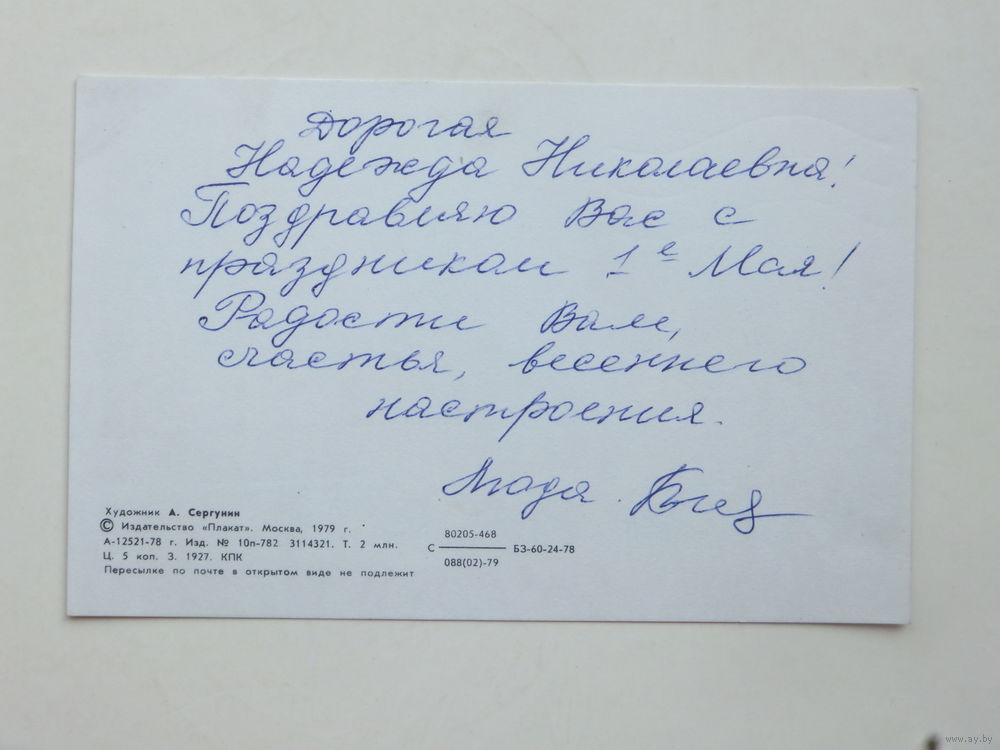 Дорогая
Надежда Николаевна!
Поздравляю Вас с
праздником 1е Мая!
Радости Вам,
счастья, весеннего
настроения.
Люда
Художник А. Сергунин
© Издательство «Плакат». Москва, 1979 г.
А-12521-78 г. Изд. № 10п-782 3114321. Т. 2 млн.
Ц. 5 коп. З. 1927. КПК
Пересылке по почте в открытом виде не подлежит
80205-468
С БЗ-60-24-78
088(02)-79
www.ay.by